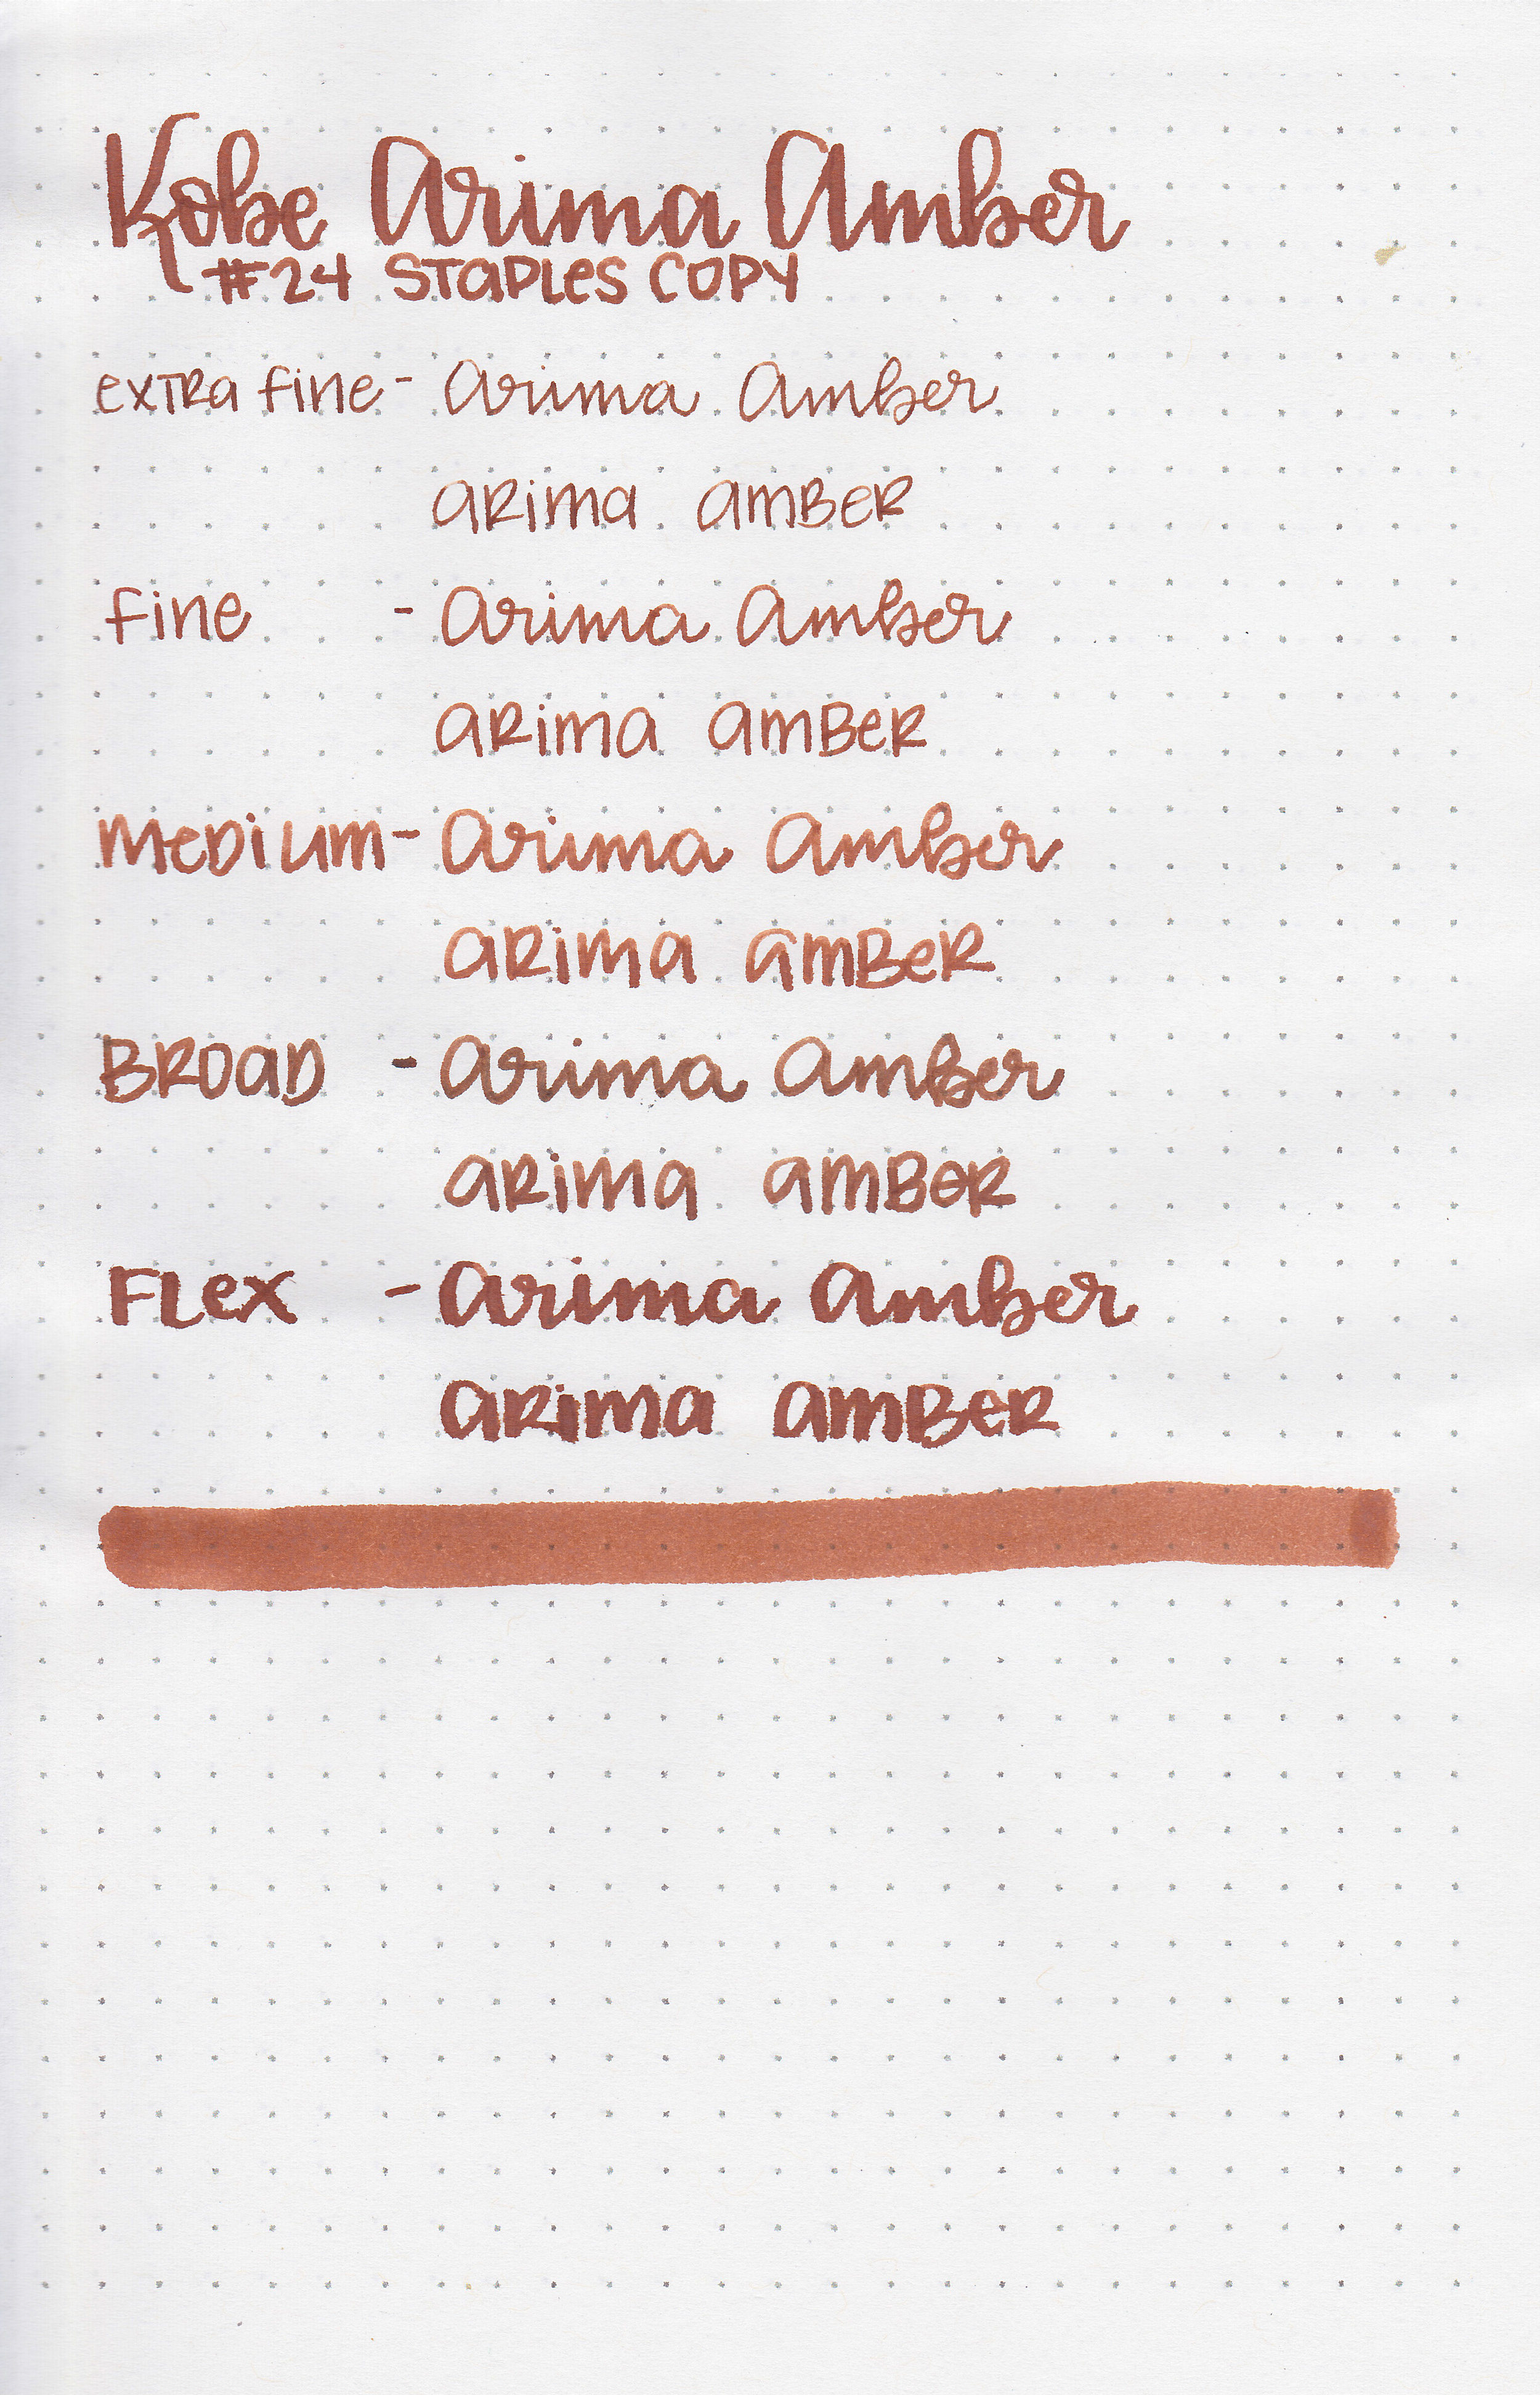 Kobe Arima Amber
#24 STaPLes COPY
exTRa fine - Arima Amber
aRima amBeR
fine - Arima Amber
aRima amBeR
meDium - Arima Amber
aRima amBeR
BROaD - Arima Amber
aRima amBeR
FLex - Arima Amber
aRima amBeR